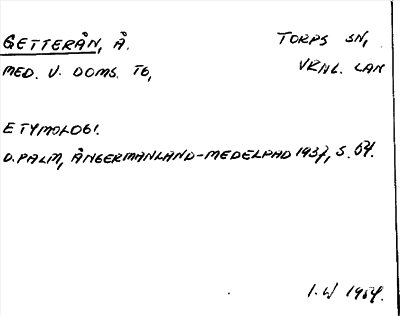 GETTERÅN, Å. TORPS SN,
MED. V. DOMS. TG, VRNL. LÄN
ETYMOLOGI.
D. PALM, ÅNGERMANLAND-MEDELPAD 1937, S. 64.
I. W 1964.